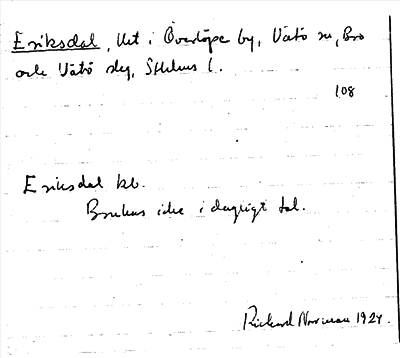 Eriksdal, Uet i Överlöpe by, Vätö sn, Bro
och Vätö slg, Sthlms l.
108
Eriksdal kb.
Brukas icke i dagligt tal.
Rickard Norman 1924.